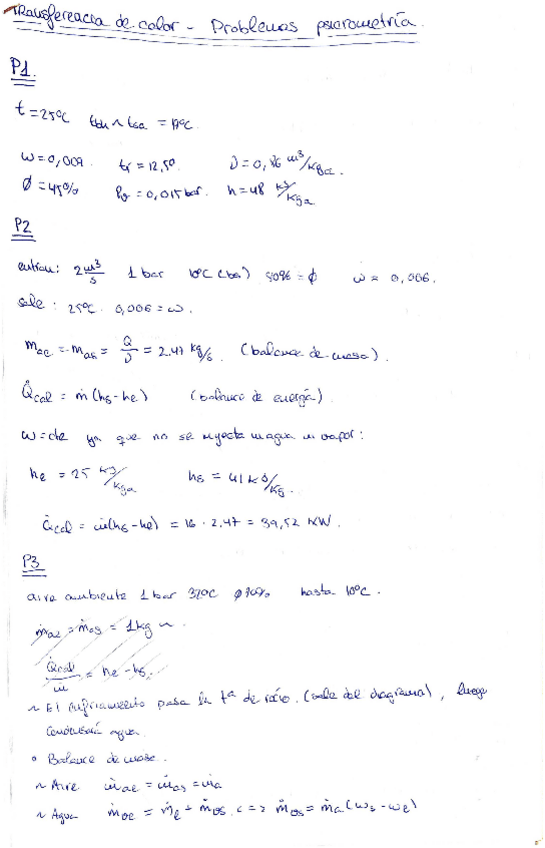 Transferencia de calor - Problemas psicrometría.
P1.
t = 25ºC tbh ~ tsa = 17ºC.
ω = 0,009 tr = 12,5º ν = 0,86 m³/kga.
Ø = 45% Pv = 0,015 bar. h = 48 kJ/kga
P2
entran: 2 m³/s 1 bar 10ºC (bs) 80% = ϕ ω = 0,006.
sale: 25ºC 0,006 = ω.
ṁae = ṁas = Q/ν = 2.47 kg/s. (balance de masa).
Q̇cal = ṁ (hs - he) (balance de energía).
ω = cte ya que no se inyecta ni agua ni vapor:
he = 25 kJ/kga hs = 41 kJ/kg.
Q̇cal = ṁ(hs - he) = 16 · 2.47 = 39,52 KW.
P3
aire ambiente 1 bar 32ºC ϕ70% hasta 10ºC.
ṁae = ṁas = 1kg
Q̇cal/ṁ = he - hs.
~ El enfriamiento pasa la tª de rocío. (sale del diagrama), luego
condensará agua.
• Balance de masa.
~ Aire ṁae = ṁas = ṁa
~ Agua